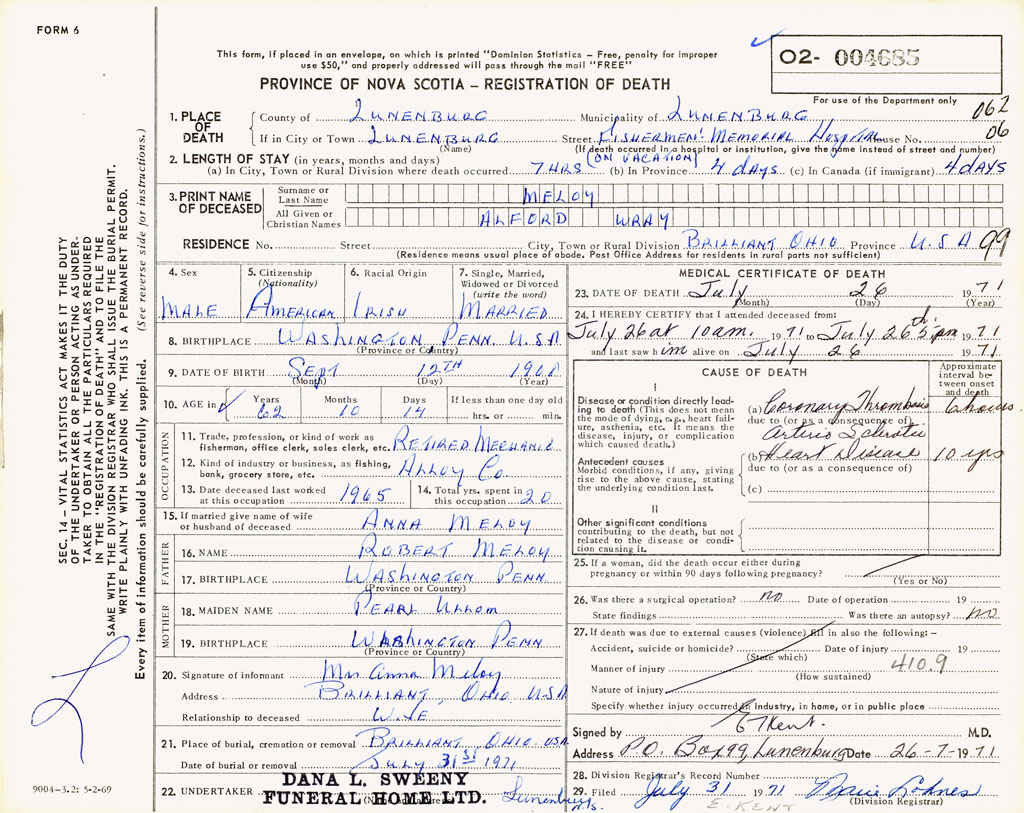 FORM 6
This form, if placed in an envelope, on which is printed "Dominion Statistics – Free, penalty for improper
use $50," and properly addressed will pass through the mail "FREE"
O2- 004685
PROVINCE OF NOVA SCOTIA – REGISTRATION OF DEATH
For use of the Department only
062
06
1. PLACE OF DEATH
County of LUNENBURG Municipality of LUNENBURG
If in City or Town LUNENBURG Street FISHERMEN'S MEMORIAL Hospital House No.
(Name) (If death occurred in a hospital or institution, give the name instead of street and number)
2. LENGTH OF STAY (in years, months and days) (ON VACATION)
(a) In City, Town or Rural Division where death occurred 7 HRS (b) In Province 4 days (c) In Canada (if immigrant) 4 DAYS
3. PRINT NAME OF DECEASED
Surname or Last Name MELOY
All Given or Christian Names ALFORD WRAY
RESIDENCE No. Street City, Town or Rural Division BRILLIANT OHIO Province U.S A 99
(Residence means usual place of abode. Post Office Address for residents in rural parts not sufficient)
4. Sex MALE
5. Citizenship (Nationality) AMERICAN
6. Racial Origin IRISH
7. Single, Married, Widowed or Divorced (write the word) MARRIED
8. BIRTHPLACE WASHINGTON PENN. U.S A
(Province or Country)
9. DATE OF BIRTH SEPT 12TH 1908
(Month) (Day) (Year)
10. AGE in Years 62 Months 10 Days 14 If less than one day old hrs. or min.
OCCUPATION
11. Trade, profession, or kind of work as fisherman, office clerk, sales clerk, etc. RETIRED MECHANIC
12. Kind of industry or business, as fishing, bank, grocery store, etc. ALLOY Co.
13. Date deceased last worked at this occupation 1965
14. Total yrs. spent in this occupation 20
15. If married give name of wife or husband of deceased ANNA MELOY
FATHER
16. NAME ROBERT MELOY
17. BIRTHPLACE WASHINGTON PENN
(Province or Country)
MOTHER
18. MAIDEN NAME PEARL ULLOM
19. BIRTHPLACE WASHINGTON PENN
(Province or Country)
20. Signature of informant Mrs Anna Meloy
Address BRILLIANT, OHIO USA
Relationship to deceased WIFE
21. Place of burial, cremation or removal BRILLIANT OHIO USA
Date of burial or removal JULY 31st 1971
22. UNDERTAKER DANA L. SWEENY
FUNERAL HOME LTD. Lunenburg N.S.
MEDICAL CERTIFICATE OF DEATH
23. DATE OF DEATH July 26 1971
(Month) (Day) (Year)
24. I HEREBY CERTIFY that I attended deceased from:
July 26 at 10 am. 1971 to July 26th 5 pm 1971
and last saw him alive on July 26 1971
CAUSE OF DEATH
Approximate interval between onset and death
I
Disease or condition directly leading to death (This does not mean the mode of dying, e.g., heart failure, asthenia, etc. It means the disease, injury, or complication which caused death.)
(a) Coronary Thrombosis 6 hours
due to (or as a consequence of)
Arterio Sclerotic
(b) Heart Disease 10 yrs
due to (or as a consequence of)
Antecedent causes
Morbid conditions, if any, giving rise to the above cause, stating the underlying condition last.
(c)
II
Other significant conditions contributing to the death, but not related to the disease or condition causing it.
25. If a woman, did the death occur either during pregnancy or within 90 days following pregnancy?
(Yes or No)
26. Was there a surgical operation? no Date of operation 19
State findings Was there an autopsy? NO
27. If death was due to external causes (violence) fill in also the following: –
Accident, suicide or homicide? Date of injury 19
(State which)
Manner of injury 410.9
(How sustained)
Nature of injury
Specify whether injury occurred in industry, in home, or in public place
Signed by E Kent. M.D.
Address P.O. Box 99, Lunenburg Date 26-7-1971
28. Division Registrar's Record Number
29. Filed July 31 1971
(Division Registrar)
E. KENT
SEC. 14 – VITAL STATISTICS ACT MAKES IT THE DUTY
OF THE UNDERTAKER OR PERSON ACTING AS UNDER-
TAKER TO OBTAIN ALL THE PARTICULARS REQUIRED
IN THE "REGISTRATION OF DEATH" AND TO FILE THE
SAME WITH THE DIVISION REGISTRAR WHO SHALL ISSUE THE BURIAL PERMIT.
WRITE PLAINLY WITH UNFADING INK. THIS IS A PERMANENT RECORD.
Every item of information should be carefully supplied. (See reverse side for instructions.)
9004-3.2: 5-2-69